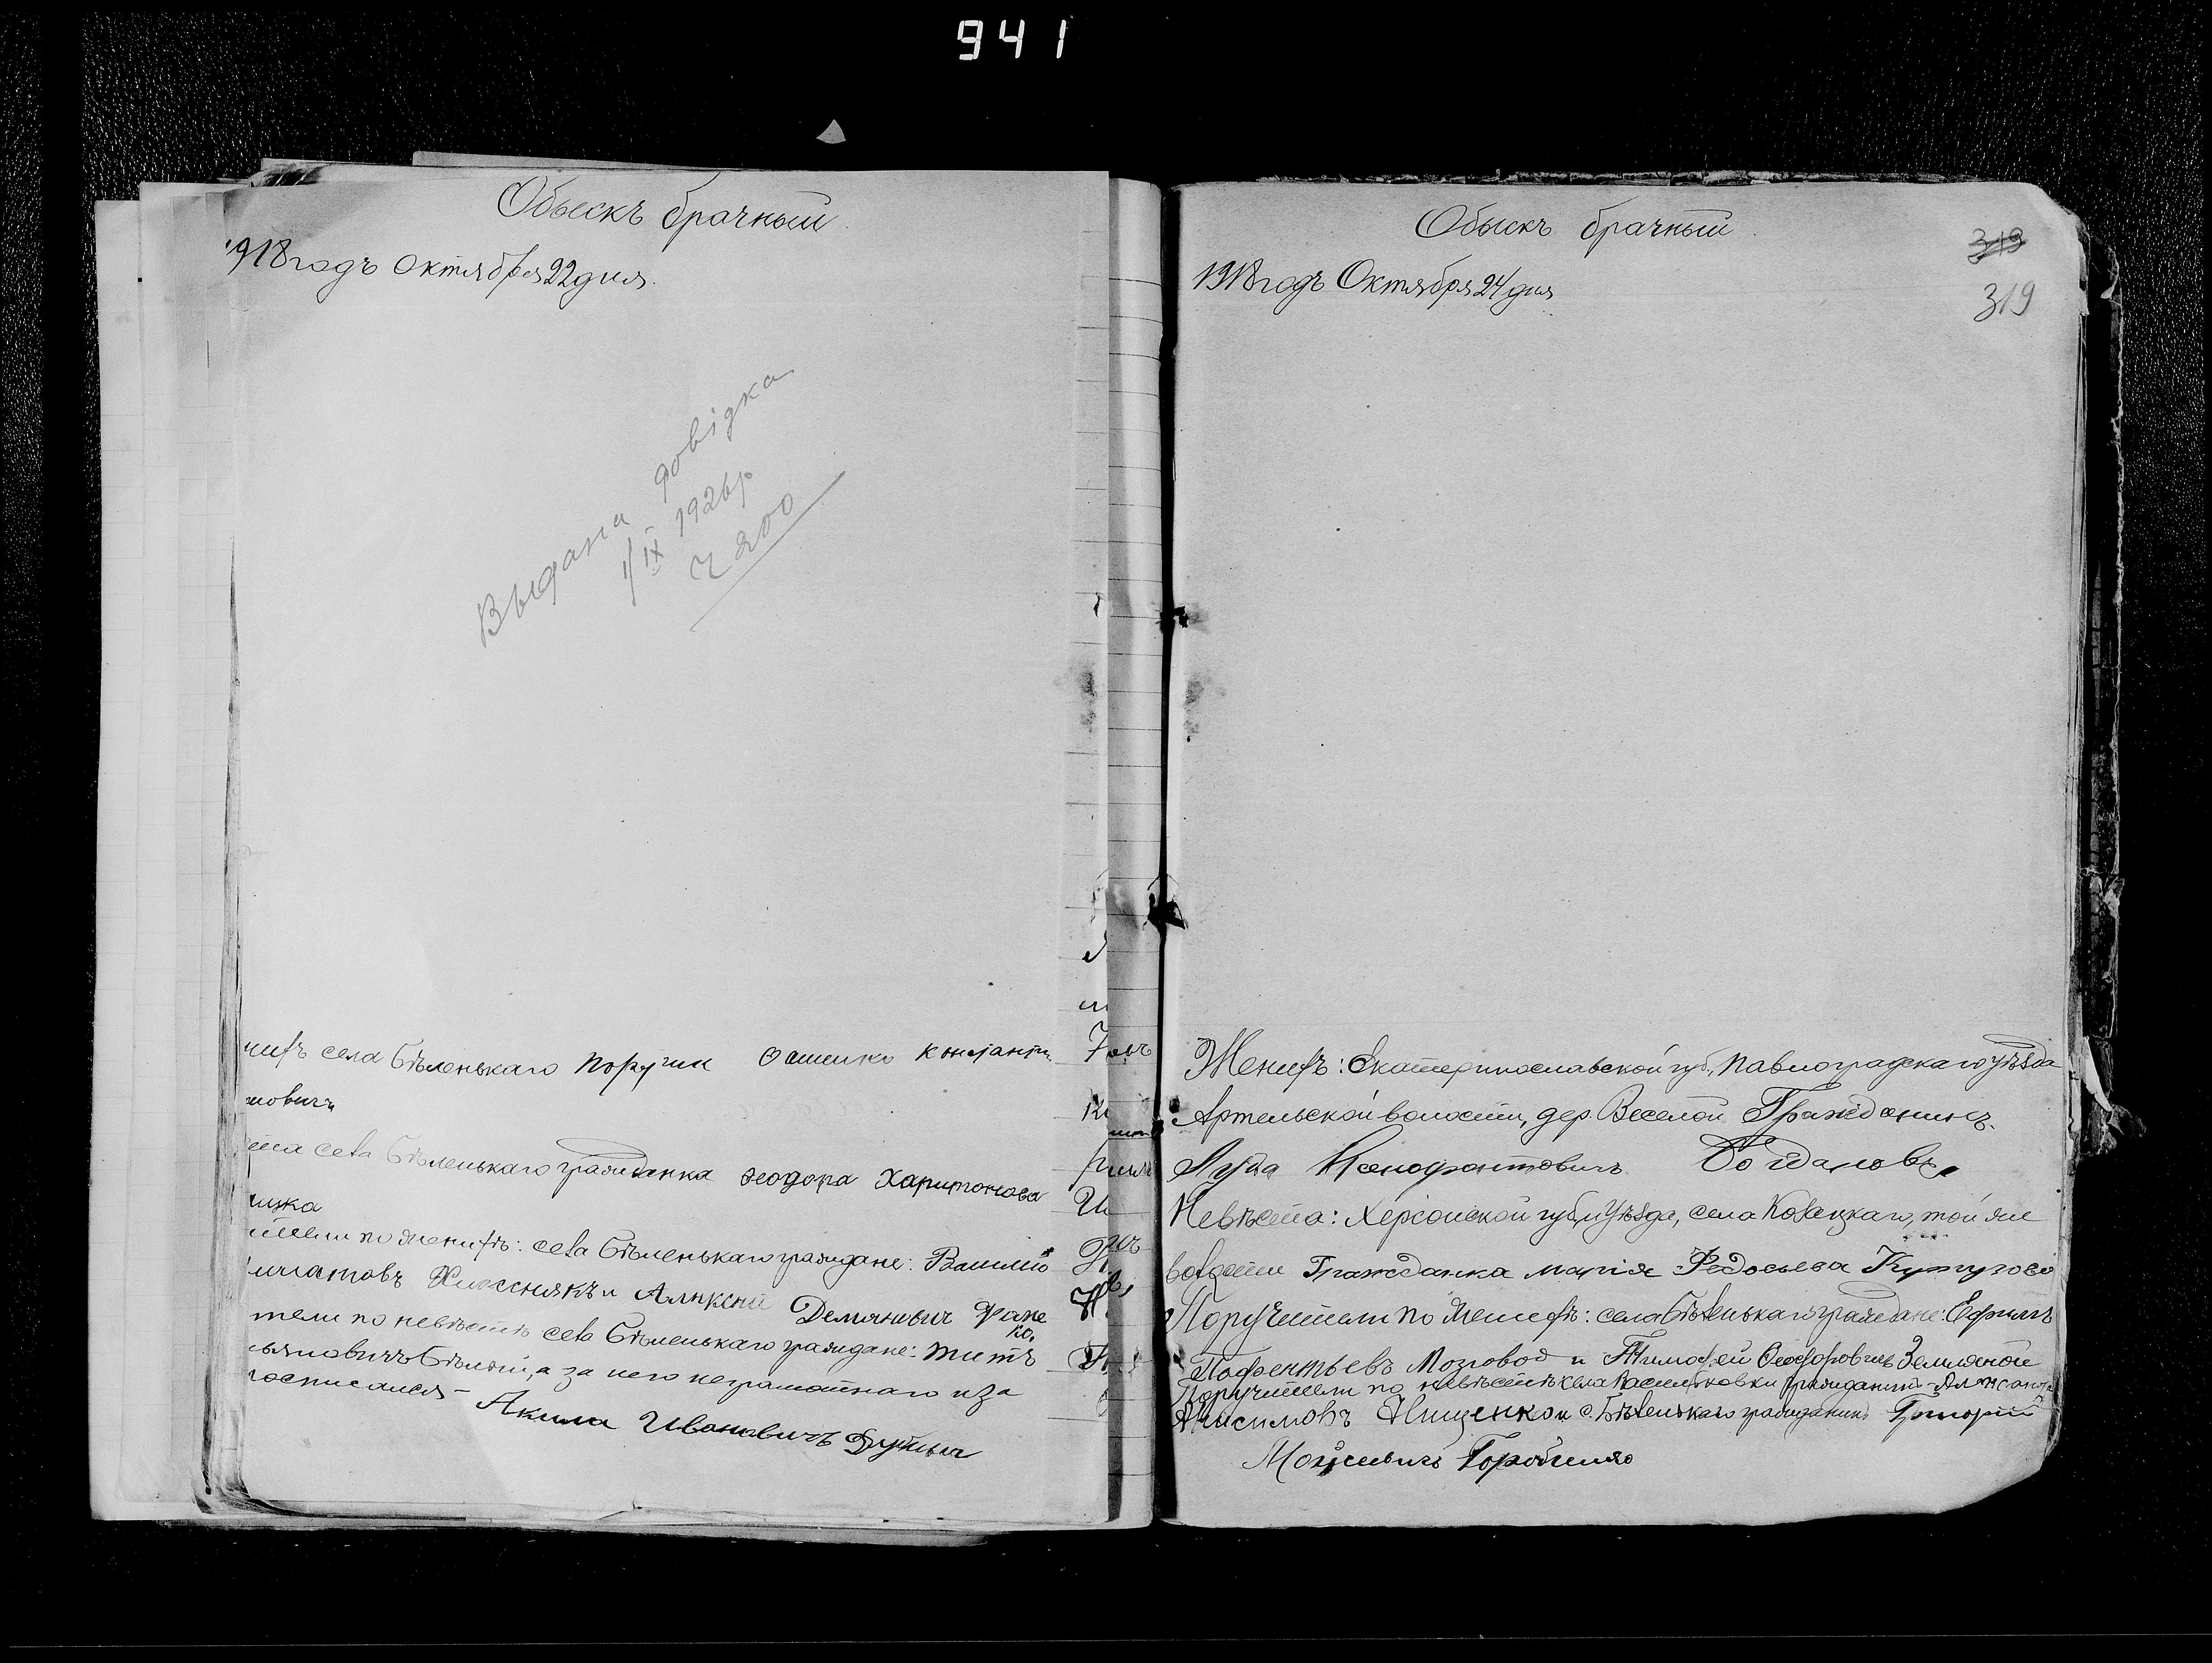 941
Обыскъ брачный
1918 годъ Октября 22 дня.
Выдана довідка
1/IX 1926 р
Ч 200
нихъ села Бѣленькаго Поручик Константи
новичъ
села Бѣленькаго гражданка Феодора Харитонова
тели по женихѣ: села Бѣленькаго граждане: Василий
Хмесснякъ и Алнксей Демянович
ко.
тели по невѣстѣ села Бѣленькаго граждане: Титъ
Бѣлый, а за него неграмотнаго и за
росписался - Акила Ивановичъ
Обыскъ брачный
319
1918 годъ Октября 24 дня
319
Женихъ: Екатеринославской губ., Павлоградскаго уѣзда
Артельской волости, дер. Веселой Гражданинъ
Лука Ксенофонтовичъ Богдановъ
Невѣста: Херсонской губ. и уѣзда, села Козацкаго, той же
волости Гражданка Марія Федосьева Кутузова
Поручители по женихѣ: села Бѣленькаго граждане: Ефимъ
Пафентьевъ Мозговой и Тимофей Феодоровичъ Земляной
Поручители по невѣстѣ села Васильковки гражданинъ - Алексанъ
Анисимовъ Нищенко и с. Бѣленькаго гражданинъ Григорий
Моисеевичъ